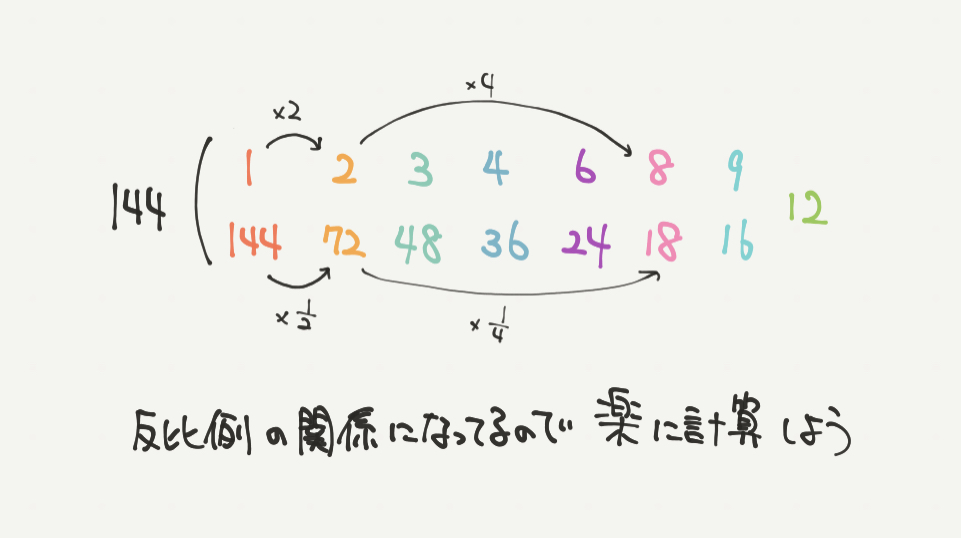 ×2 ×4
1 2 3 4 6 8 9
144 12
144 72 48 36 24 18 16
× 1/2 × 1/4
反比例の関係になってるので 楽に計算しよう